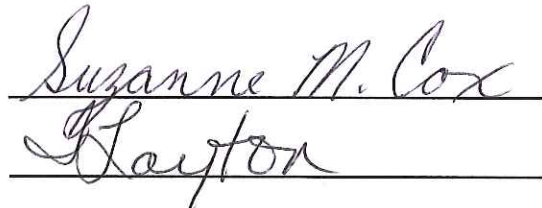 Suzanne M. Cox
Layton